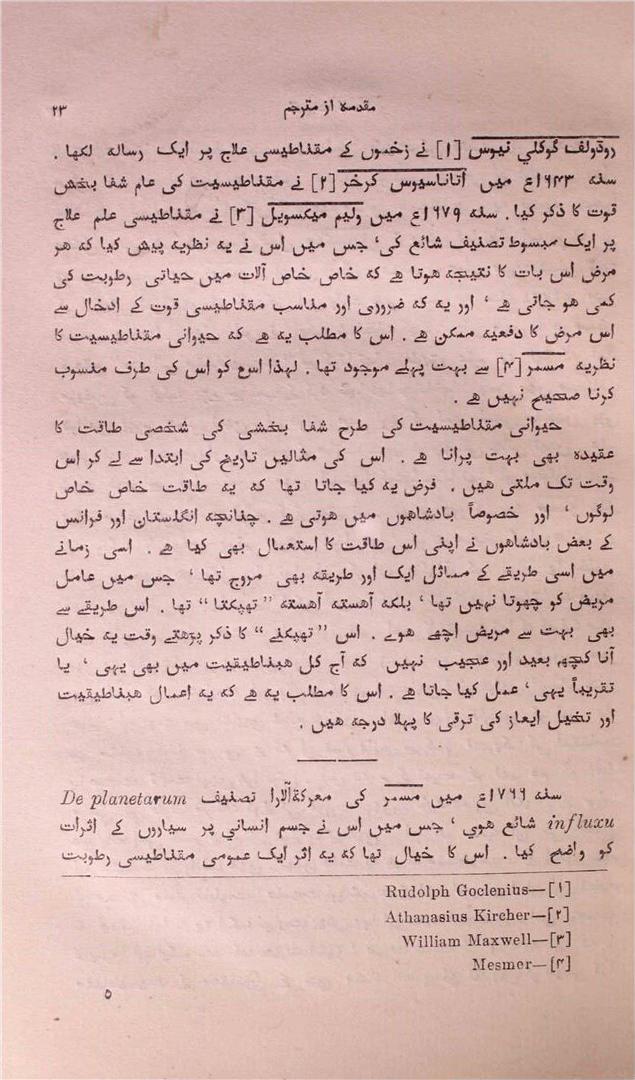 مقدمہ از مترجم
۲۳
روڈولف گوکلي نیوس [۱] نے زخموں کے مقناطیسی علاج پر ایک رسالہ لکھا .
سنہ ۱۶۴۳ع میں آتاناسیوس کرخر [۲] نے مقناطیسیت کی عام شفا بخش
قوت کا ذکر کیا . سنہ ۱۶۷۹ع میں ولیم میکسویل [۳] نے مقناطیسی علم علاج
پر ایک مبسوط تصنیف شائع کی ‘ جس میں اس نے یہ نظریہ پیش کیا کہ ھر
مرض اس بات کا نتیجہ ھوتا ھے کہ خاص خاص آلات میں حیاتی رطوبت کی
کمی ھو جاتی ھے ‘ اور یہ کہ ضروری اور مناسب مقناطیسی قوت کے ادخال سے
اس مرض کا دفعیہ ممکن ھے . اس کا مطلب یہ ھے کہ حیوانی مقناطیسیت کا
نظریہ مسمر [۴] سے بہت پہلے موجود تھا . لہذا اس کو اس کی طرف منسوب
کرنا صحیح نہیں ھے .
حیوانی مقناطیسیت کی طرح شفا بخشی کی شخصی طاقت کا
عقیدہ بھی بہت پرانا ھے . اس کی مثالیں تاریخ کی ابتدا سے لے کر اس
وقت تک ملتی ھیں . فرض یہ کیا جاتا تھا کہ یہ طاقت خاص خاص
لوگوں ‘ اور خصوصاً بادشاھوں میں ھوتی ھے . چنانچہ انگلستان اور فرانس
کے بعض بادشاھوں نے اپنی اس طاقت کا استعمال بھی کیا ھے . اسی زمانے
میں اسی طریقے کے مماثل ایک اور طریقہ بھی مروج تھا ‘ جس میں عامل
مریض کو چھوتا نہیں تھا ‘ بلکہ آھستہ آھستہ ”تھپکتا“ تھا . اس طریقے سے
بھی بہت سے مریض اچھے ھوے . اس ”تھپکنے“ کا ذکر پڑھتے وقت یہ خیال
آنا کچھ بعید اور عجیب نہیں کہ آج کل ھپناطیقیت میں بھی یہی ‘ یا
تقریباً یہی ‘ عمل کیا جاتا ھے . اس کا مطلب یہ ھے کہ یہ اعمال ھپناطیقیت
اور تخیل ایعاز کی ترقی کا پہلا درجہ ھیں .
سنہ ۱۷۶۶ع میں مسمر کی معرکۃالآرا تصنیف De planetarum
influxu شائع ھوي ‘ جس میں اس نے جسم انساني پر سیاروں کے اثرات
کو واضح کیا . اس کا خیال تھا کہ یہ اثر ایک عمومی مقناطیسی رطوبت
Rudolph Goclenius—[۱]
Athanasius Kircher—[۲]
William Maxwell—[۳]
Mesmer—[۴]
۵